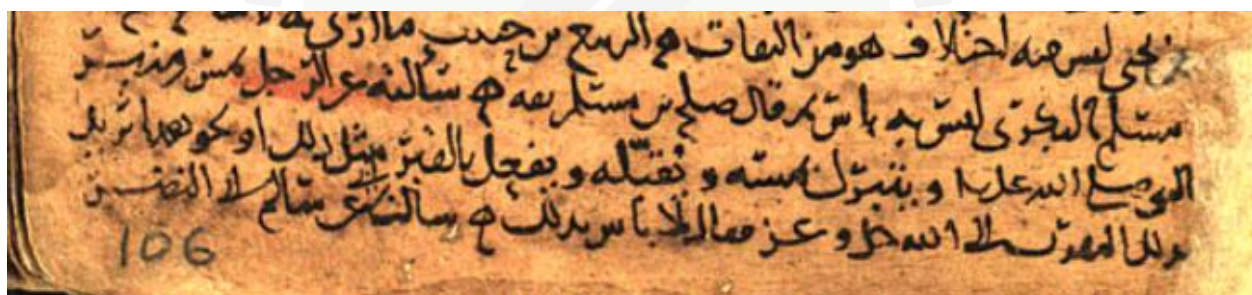 يحيى ليس فيه اختلاف هو من الثقات ه الربيع بن حبيب ما أرى به
مسلم العدوى ليس به باس قال صلح بن مسلم ثقه ه سألته عن الرجل يمس منبر
النبي صلى الله عليه و يتبرك بمسه و يقبله و يفعل بالقبر مثل ذلك او نحو هذا يريد
بذلك التقرب الى الله جل و عز فقال لا باس بذلك ه سألته عن سالم ابى النضر
106